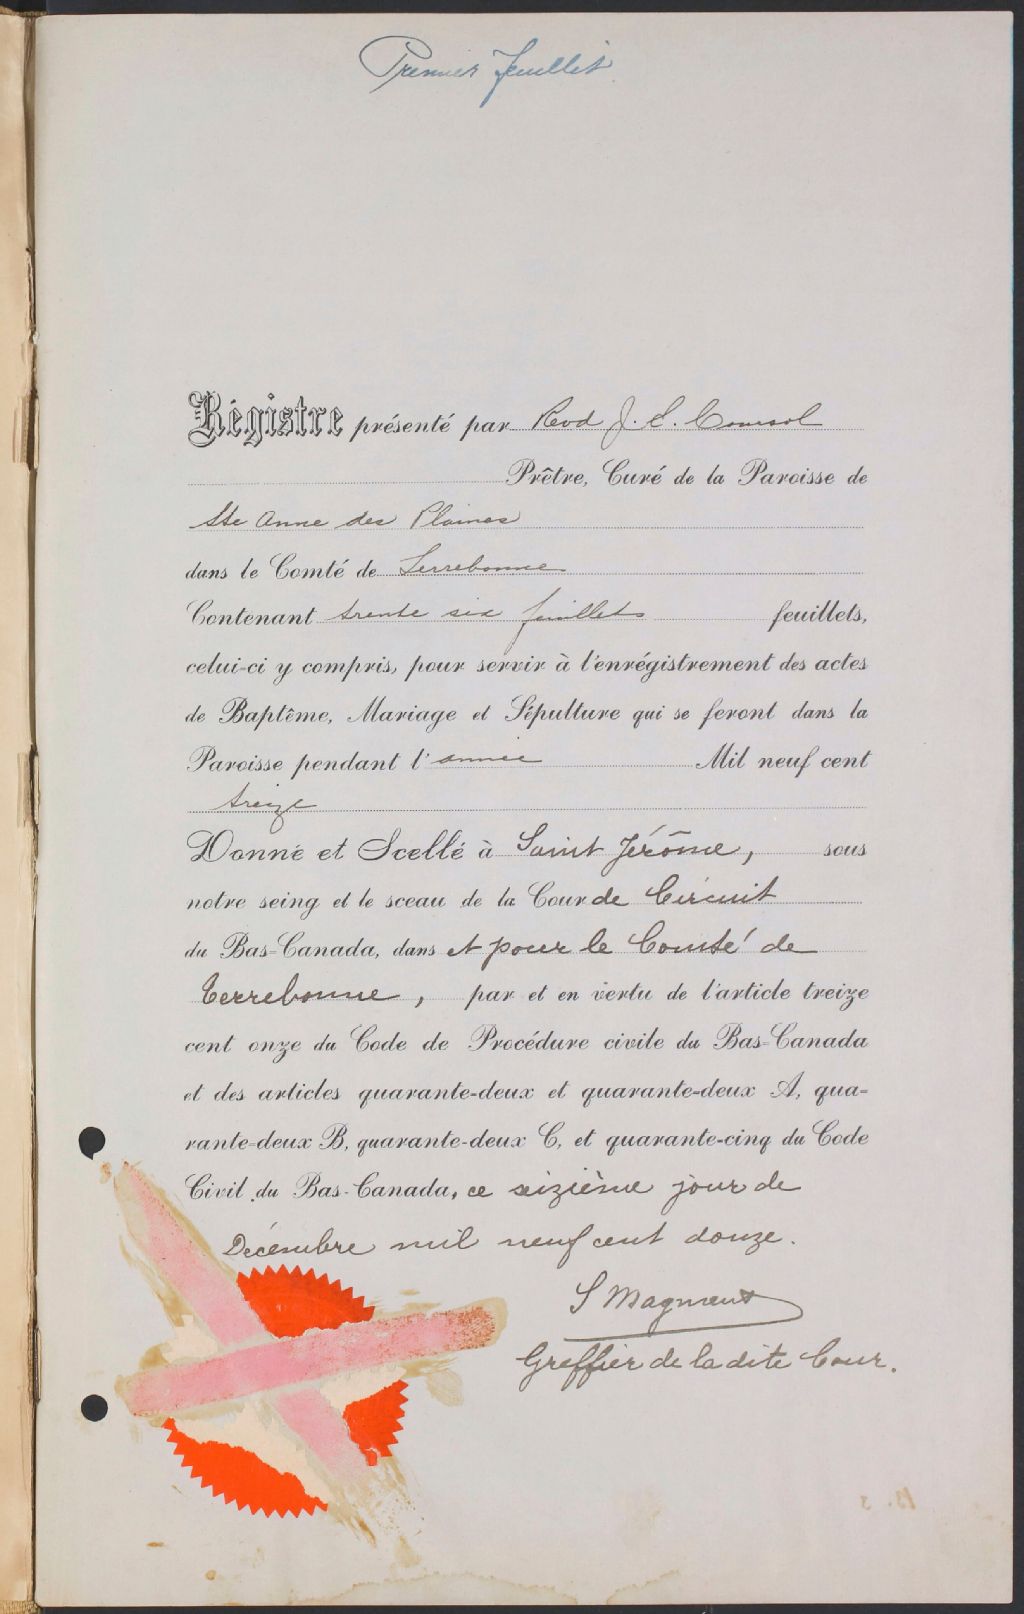 Premier feuillet
Régistre présenté par Revd J. E. Coursol
Prêtre, Curé de la Paroisse de
Ste Anne des Plaines
dans le Comté de Terrebonne
Contenant trente six feuillets feuillets,
celui-ci y compris, pour servir à l'enrégistrement des actes
de Baptême, Mariage et Sépulture qui se feront dans la
Paroisse pendant l'année Mil neuf cent
treize
Donné et Scellé à Saint Jérôme, sous
notre seing et le sceau de la Cour de Circuit
du Bas-Canada, dans et pour le Comté de
Terrebonne, par et en vertu de l'article treize
cent onze du Code de Procédure civile du Bas-Canada
et des articles quarante-deux et quarante-deux A, qua-
rante-deux B, quarante-deux C, et quarante-cinq du Code
Civil du Bas-Canada, ce seizième jour de
Décembre mil neuf cent douze.
Greffier de la dite Cour.